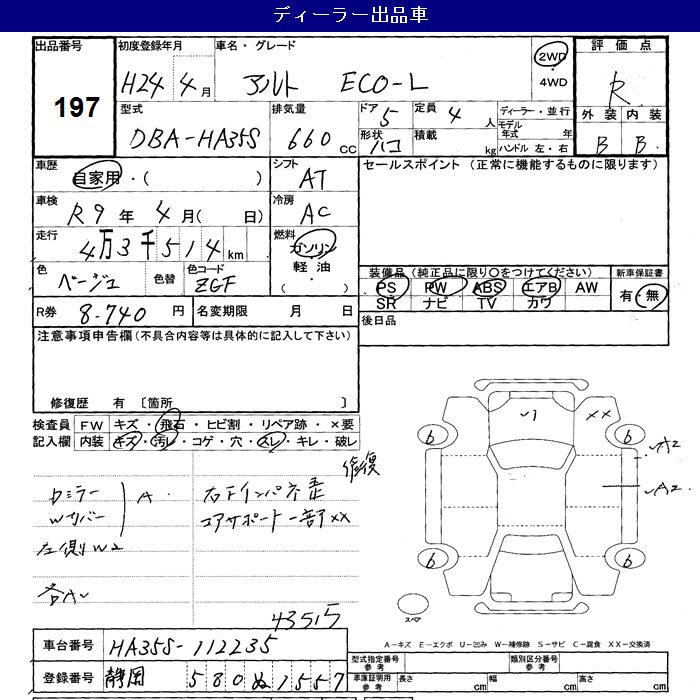 ディーラー出品車
出品番号
197
初度登録年月
H24 4月
車名・グレード
アルト ECO-L
2WD
・
4WD
評価点
R
型式
DBA-HA35S
排気量
660 cc
ドア 5
定員 4 人
形状 ハコ
積載 kg
ディーラー・並行
モデル年式 年
ハンドル 左・右
外装 内装
B B
車歴
自家用・( )
シフト
AT
セールスポイント (正常に機能するものに限ります)
車検
R9年4月( 日)
冷房
AC
走行
4万3千514km
燃料
ガソリン
軽油
( ・ )
色
ベージュ
色替
色コード
ZGF
装備品(純正品に限り○をつけてください)
PS PW ABS エアB AW
SR ナビ TV カワ
新車保証書
有・無
R券 8,740 円
名変期限 月 日
後日品
注意事項申告欄(不具合内容等は具体的に記入して下さい)
修復歴 有 〔箇所 〕
検査員
記入欄
FW キズ・飛石・ヒビ割・リペア跡・×要
内装 キズ・汚レ・コゲ・穴・スレ・キレ・破レ
修復
ミラー
Wカバー
A
右下インパネ歪
コアサポート一部XX
左側W2
各A
43515
1
XX
6
6
A2
A2
6
6
スペア
A-キズ E-エクボ U-凹み W-補修跡 S-サビ C-腐食 XX-交換済
車台番号 HA35S-112235
登録番号 静岡 580 ぬ 1557
型式指定番号
参考
類別区分番号
参考
車庫証明用
参考
長さ cm
幅 cm
高さ cm